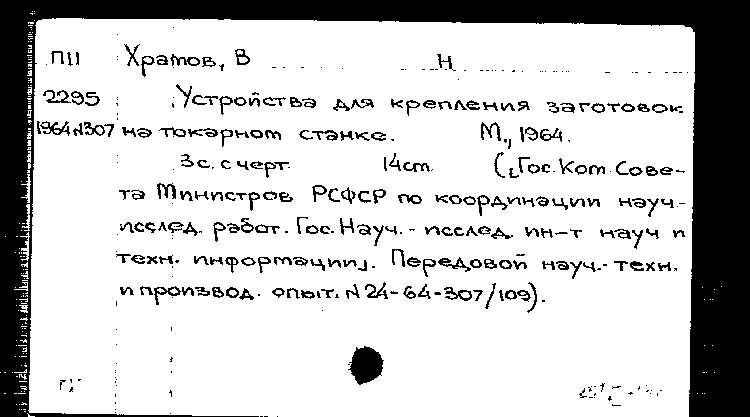 П11 Храмов, В Н
2295 Устройства для крепления заготовок
1964 N307 на токарном станке. М., 1964.
3 с. с черт. 14cm ([Гос. Ком. Сове-
та Министров РСФСР по координации науч.-
исслед. работ. Гос. Науч.- исслед. ин-т науч и
техн. информации]. Передовой науч.-техн.
и производ. опыт. N 24-64-307/109).